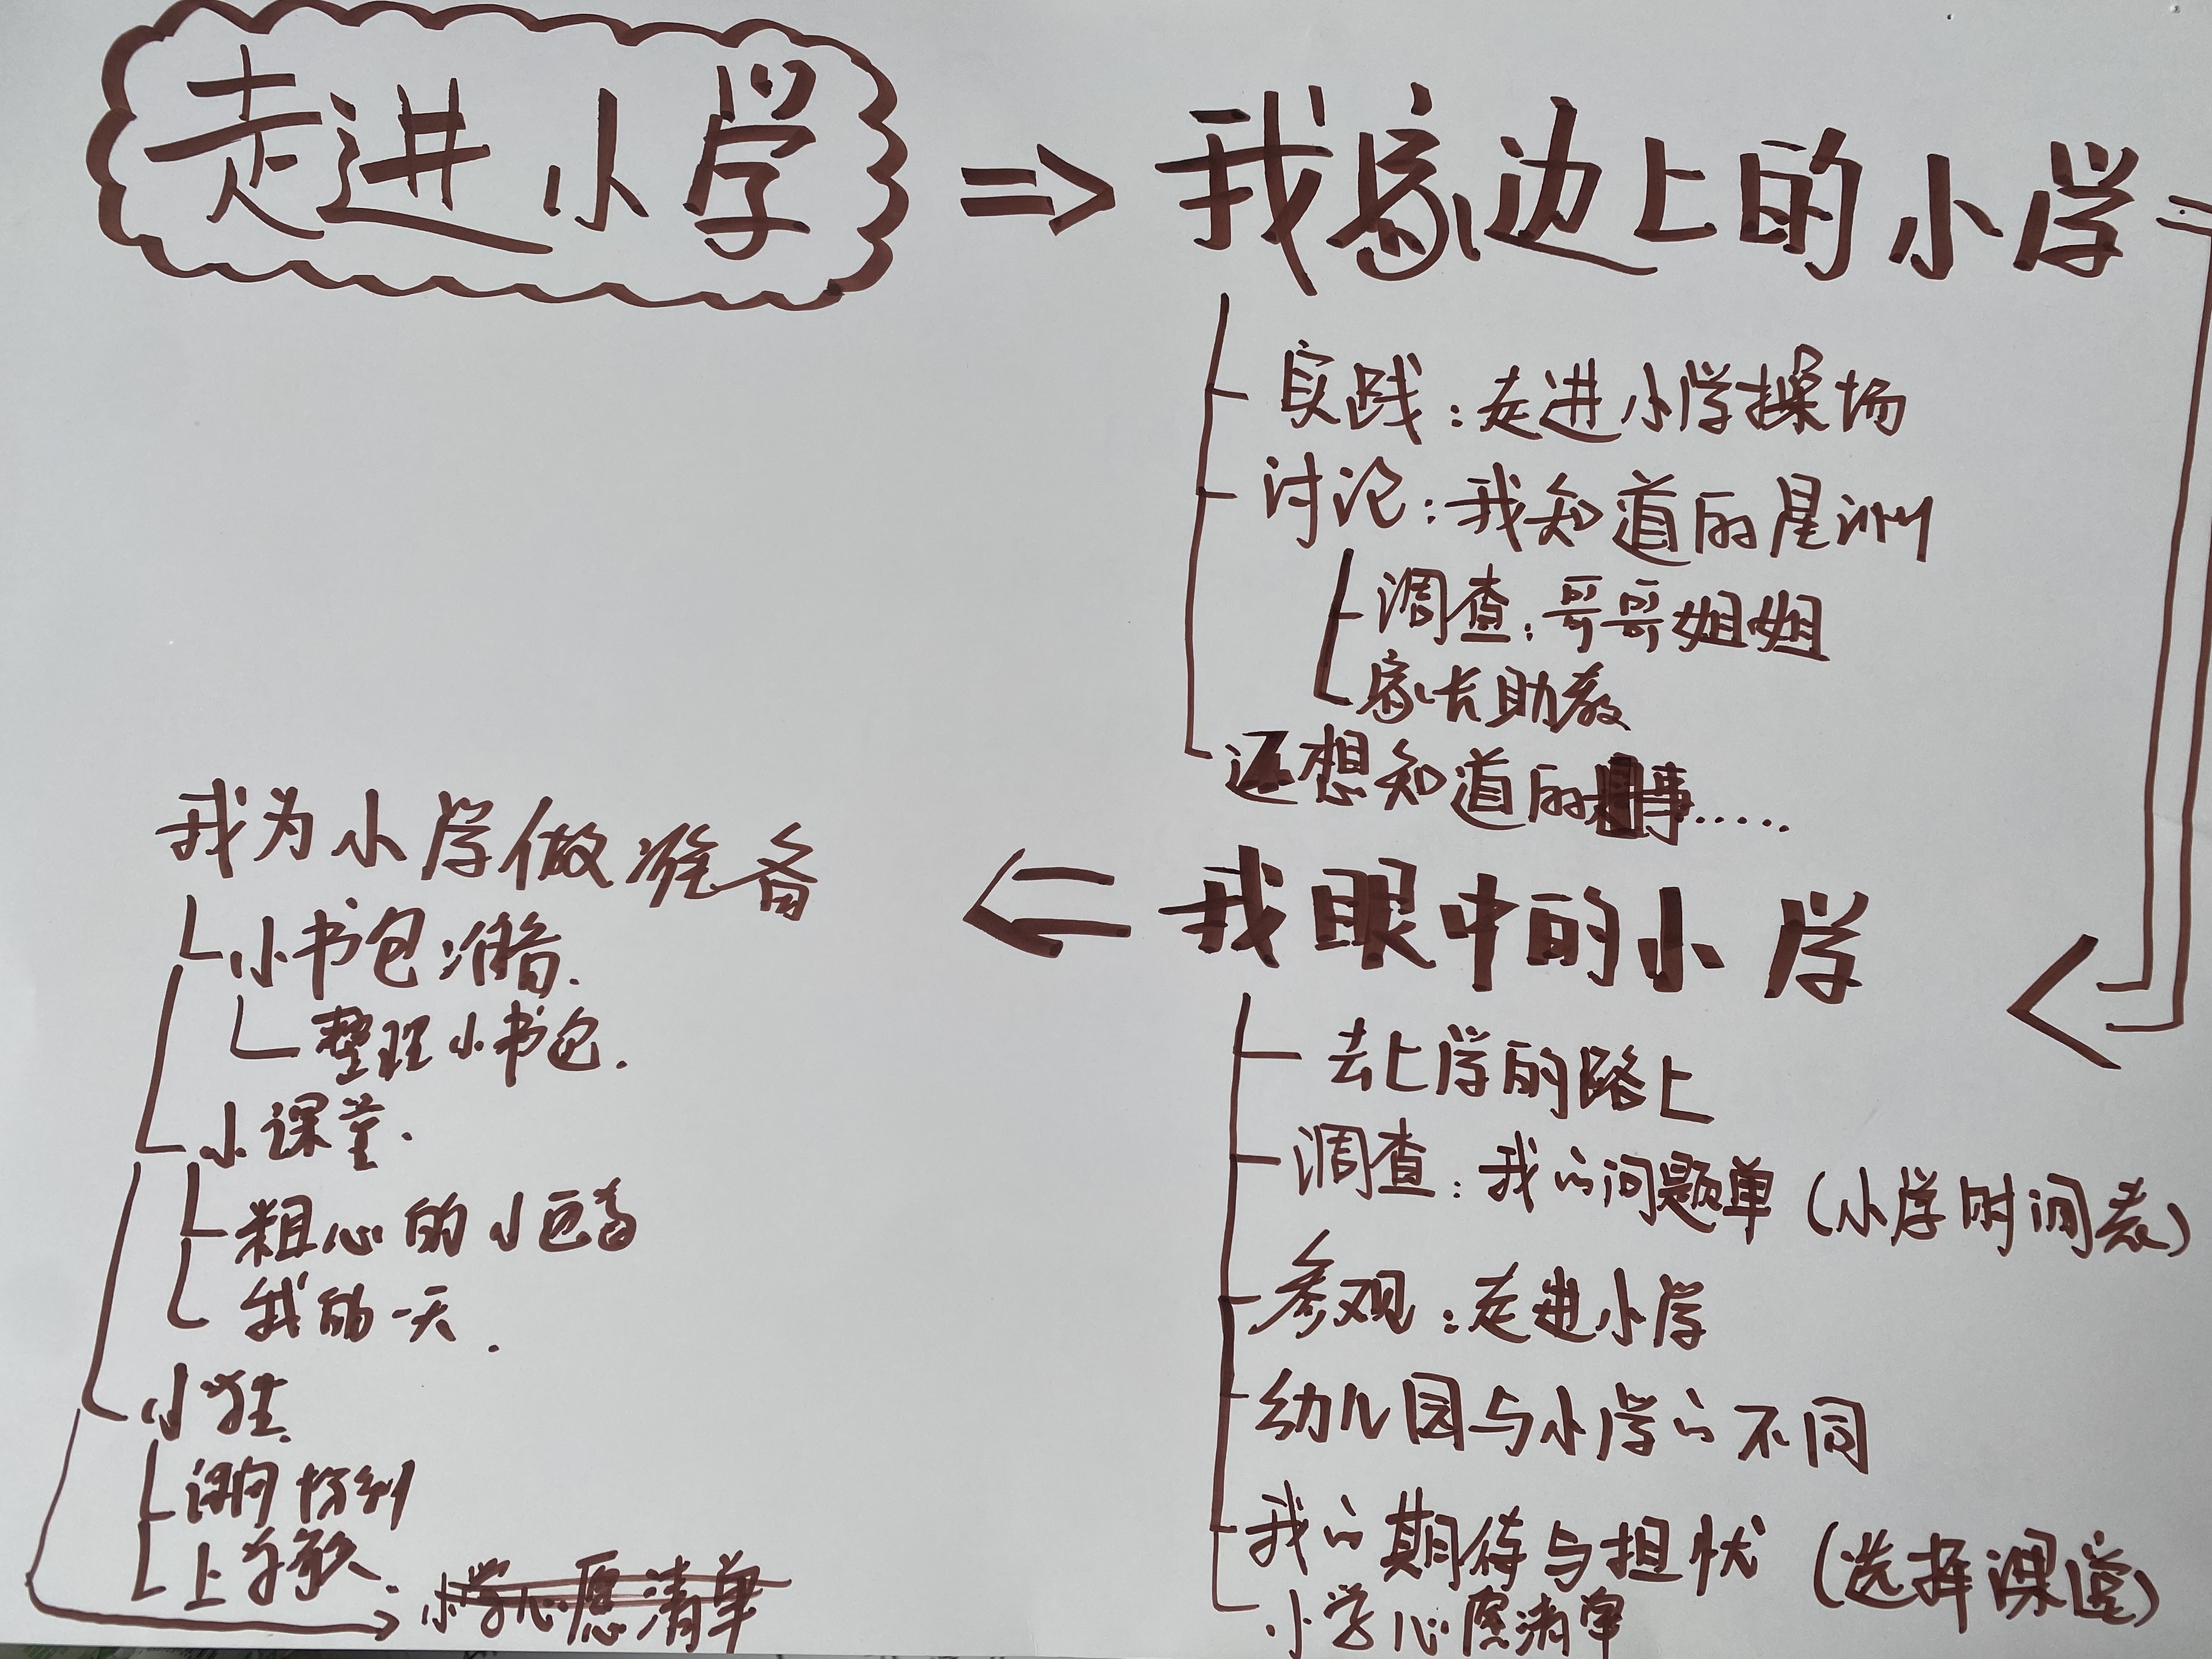 走进小学
⇒ 我家边上的小学
实践：走进小学操场
讨论：我知道的星洲
调查：哥哥姐姐
家长助教
还想知道的事……
我眼中的小学
去上学的路上
调查：我的问题单（小学时间表）
参观：走进小学
幼儿园与小学的不同
我的期待与担忧（选择课堂）
小学心愿清单
我为小学做准备
小书包准备.
整理小书包.
小课堂.
粗心的小画家
我的一天.
小学生.
课间
上学歌.
小学心愿清单